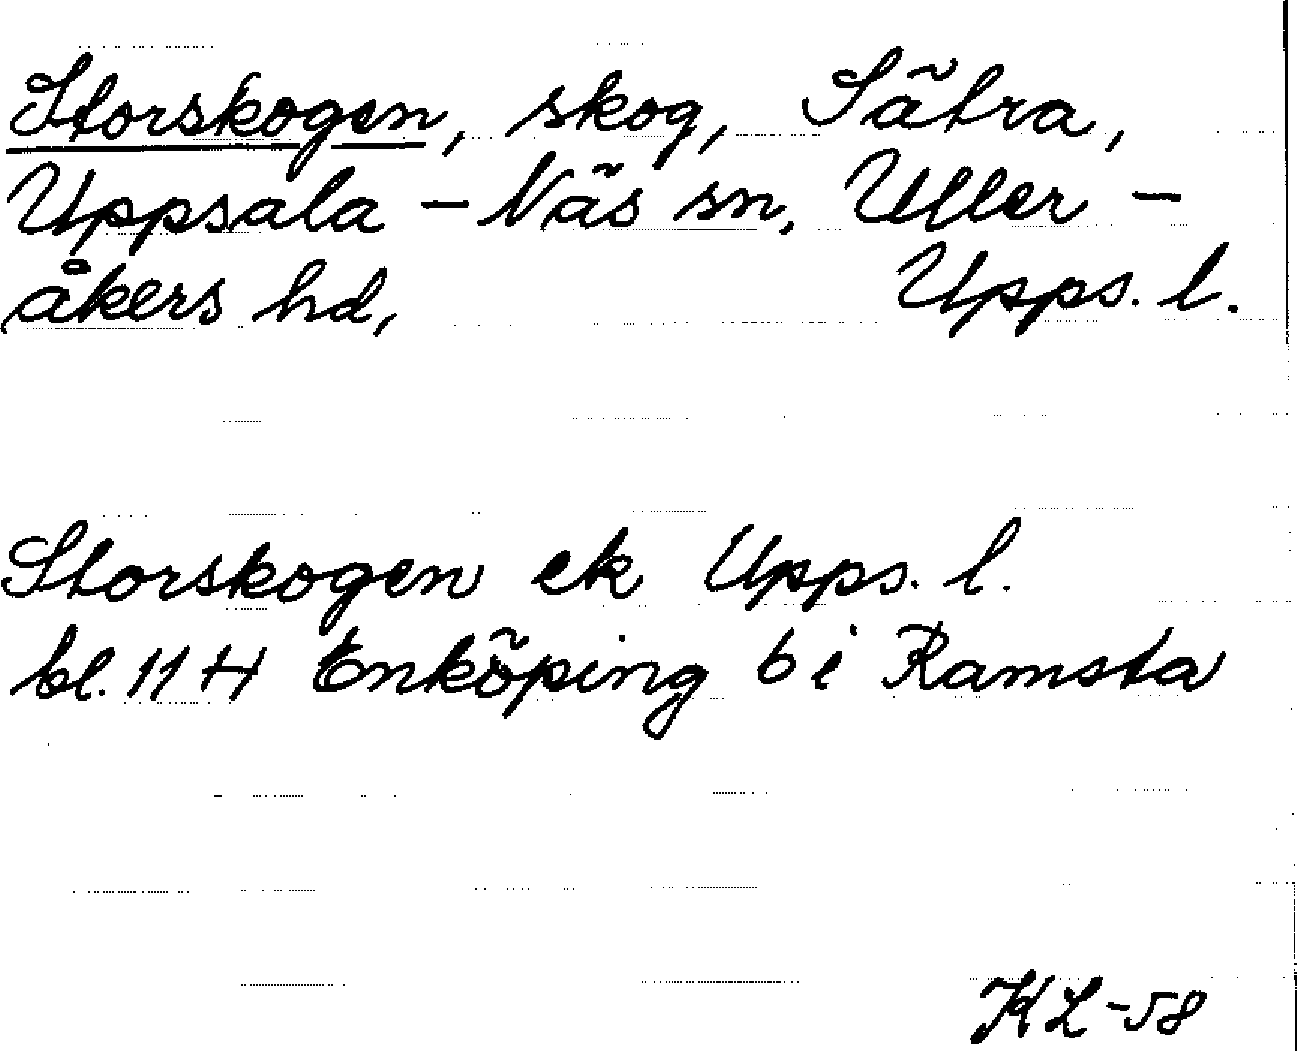 Storskogen, skog, Sätra,
Uppsala-Näs sn, Uller-
åkers hd, Upps. l.
Storskogen ek Upps. l.
bl. 114 Enköping 6 i Ramsta
KL-58